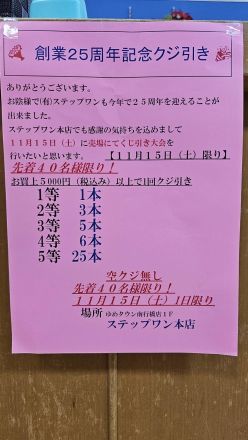 創業25周年記念クジ引き
ありがとうございます。
お陰様で(有)ステップワンも今年で２５周年を迎えることが
出来ました。
ステップワン本店でも感謝の気持ちを込めまして
１１月１５日（土）に売場にてくじ引き大会を
行いたいと思います。【１１月１５日（土）限り】
先着４０名様限り！
お買上５000円（税込み）以上で1回クジ引き
1等 1本
2等 3本
3等 5本
4等 6本
5等 25本
空クジ無し
先着４０名様限り！
１１月１５日（土）1日限り
場所 ゆめタウン南行橋店１Ｆ
ステップワン本店